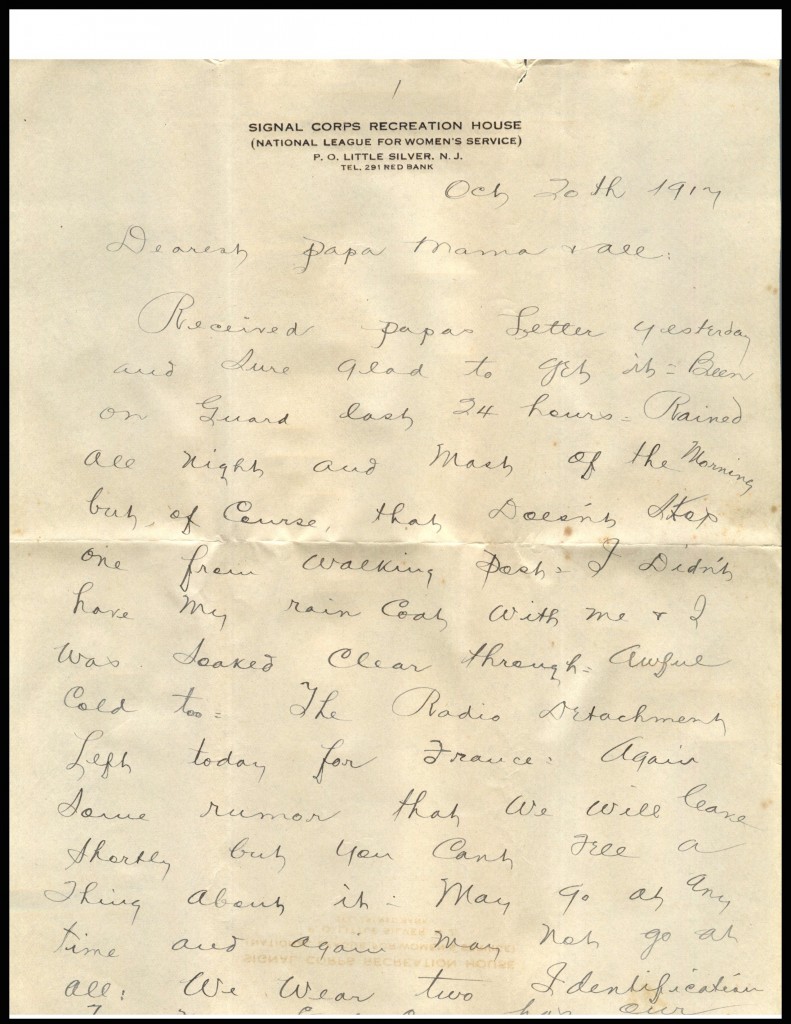 1
SIGNAL CORPS RECREATION HOUSE
(NATIONAL LEAGUE FOR WOMEN'S SERVICE)
P. O. LITTLE SILVER, N. J.
TEL. 291 RED BANK
Oct 20th 1917
Dearest papa mama & all:
Received papas Letter yesterday
and Sure glad to get it = Been
on Guard last 24 hours = Rained
all night and Most of the Morning
but, of Course, that Doesn't Stop
one from walking post = I Didn't
have My rain Coat With me & I
Was Soaked Clear through = Awful
Cold too = The Radio Detachment
Left today for France: Again
Some rumor that We Will leave
Shortly but You Cant Tell a
Thing About it = May go at Any
time and again May Not go at
all: We Wear two Identification
has our